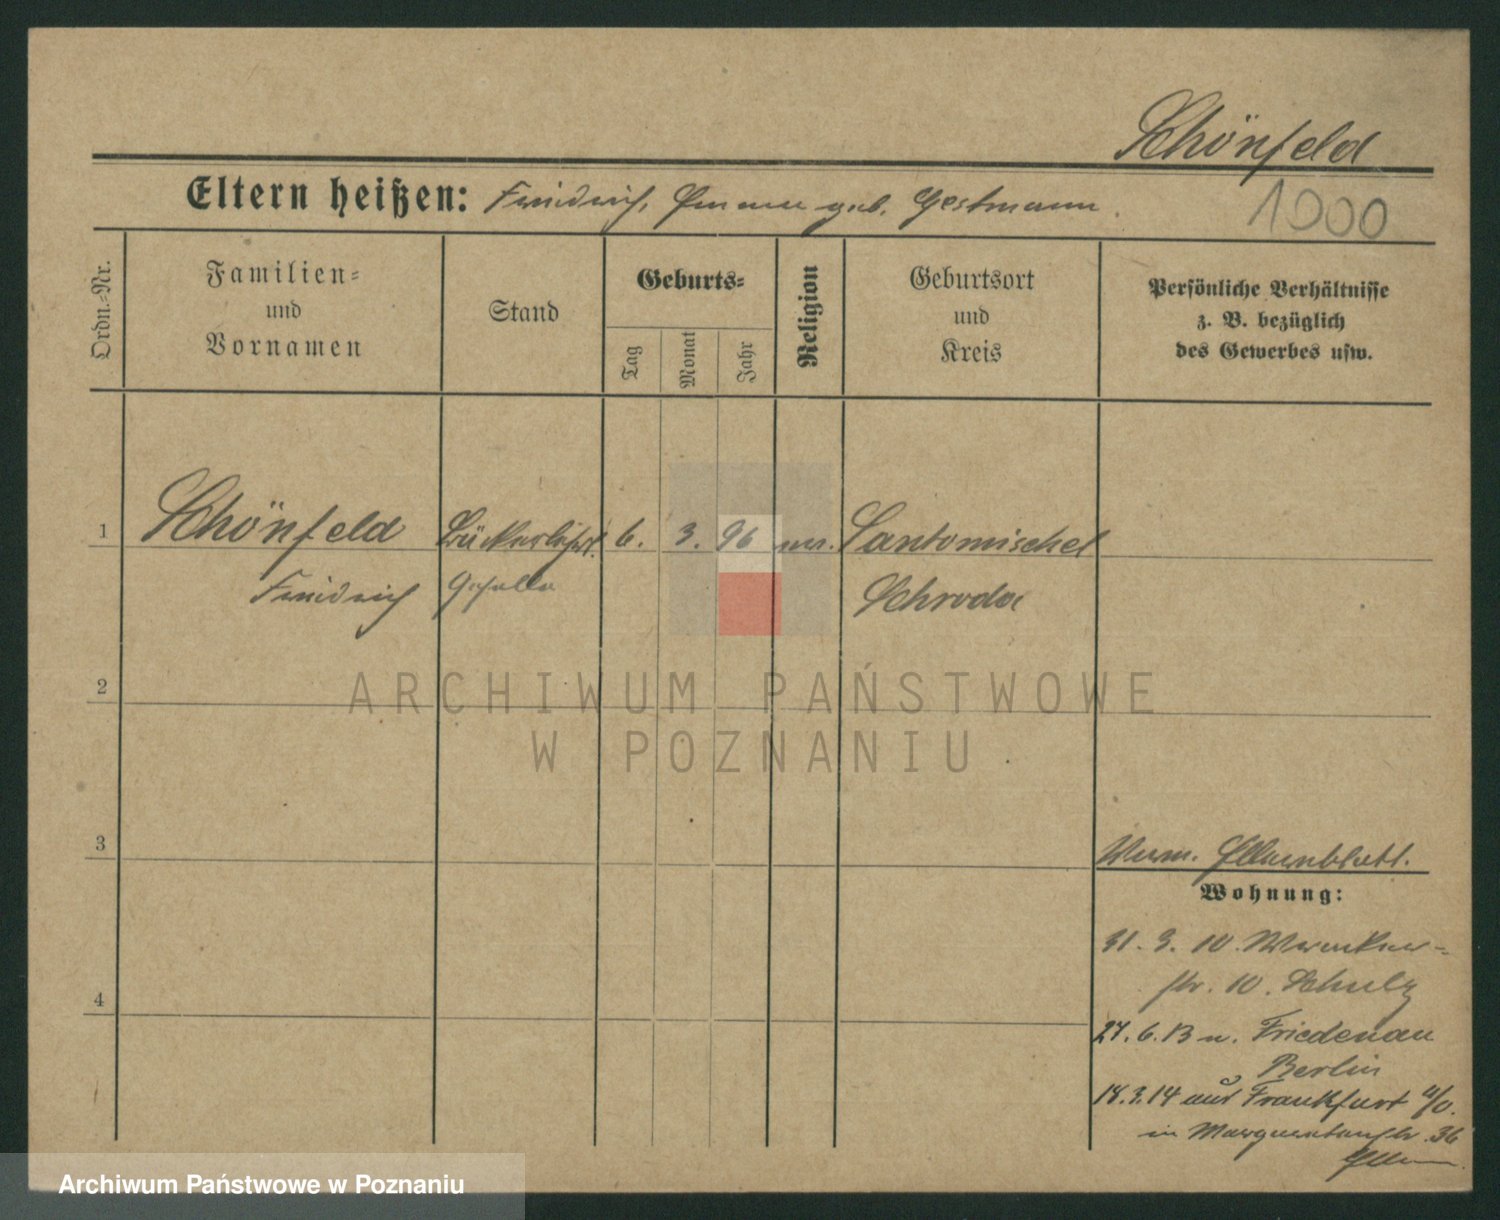 Schönfeld
Eltern heißen: Friedrich, Emma geb. Gestmann.
1000
Ordn.-Nr.
Familien-
und
Vornamen
Stand
Geburts-
Tag
Monat
Jahr
Religion
Geburtsort
und
Kreis
Persönliche Verhältnisse
z. B. bezüglich
des Gewerbes usw.
1 Schönfeld 6. 3. 96 Santomischel
Friedrich Geselle Schroda
2
ARCHIWUM PAŃSTWOWE
W POZNANIU
3
Elternblatt.
Wohnung:
31. 3. 10.
str. 10. Schulz
4
27. 6. 13 n. Friedenau
Berlin
18. 3. 14 aus Frankfurt a/O.
in Margaretenstr. 36
Eltern
Archiwum Państwowe w Poznaniu